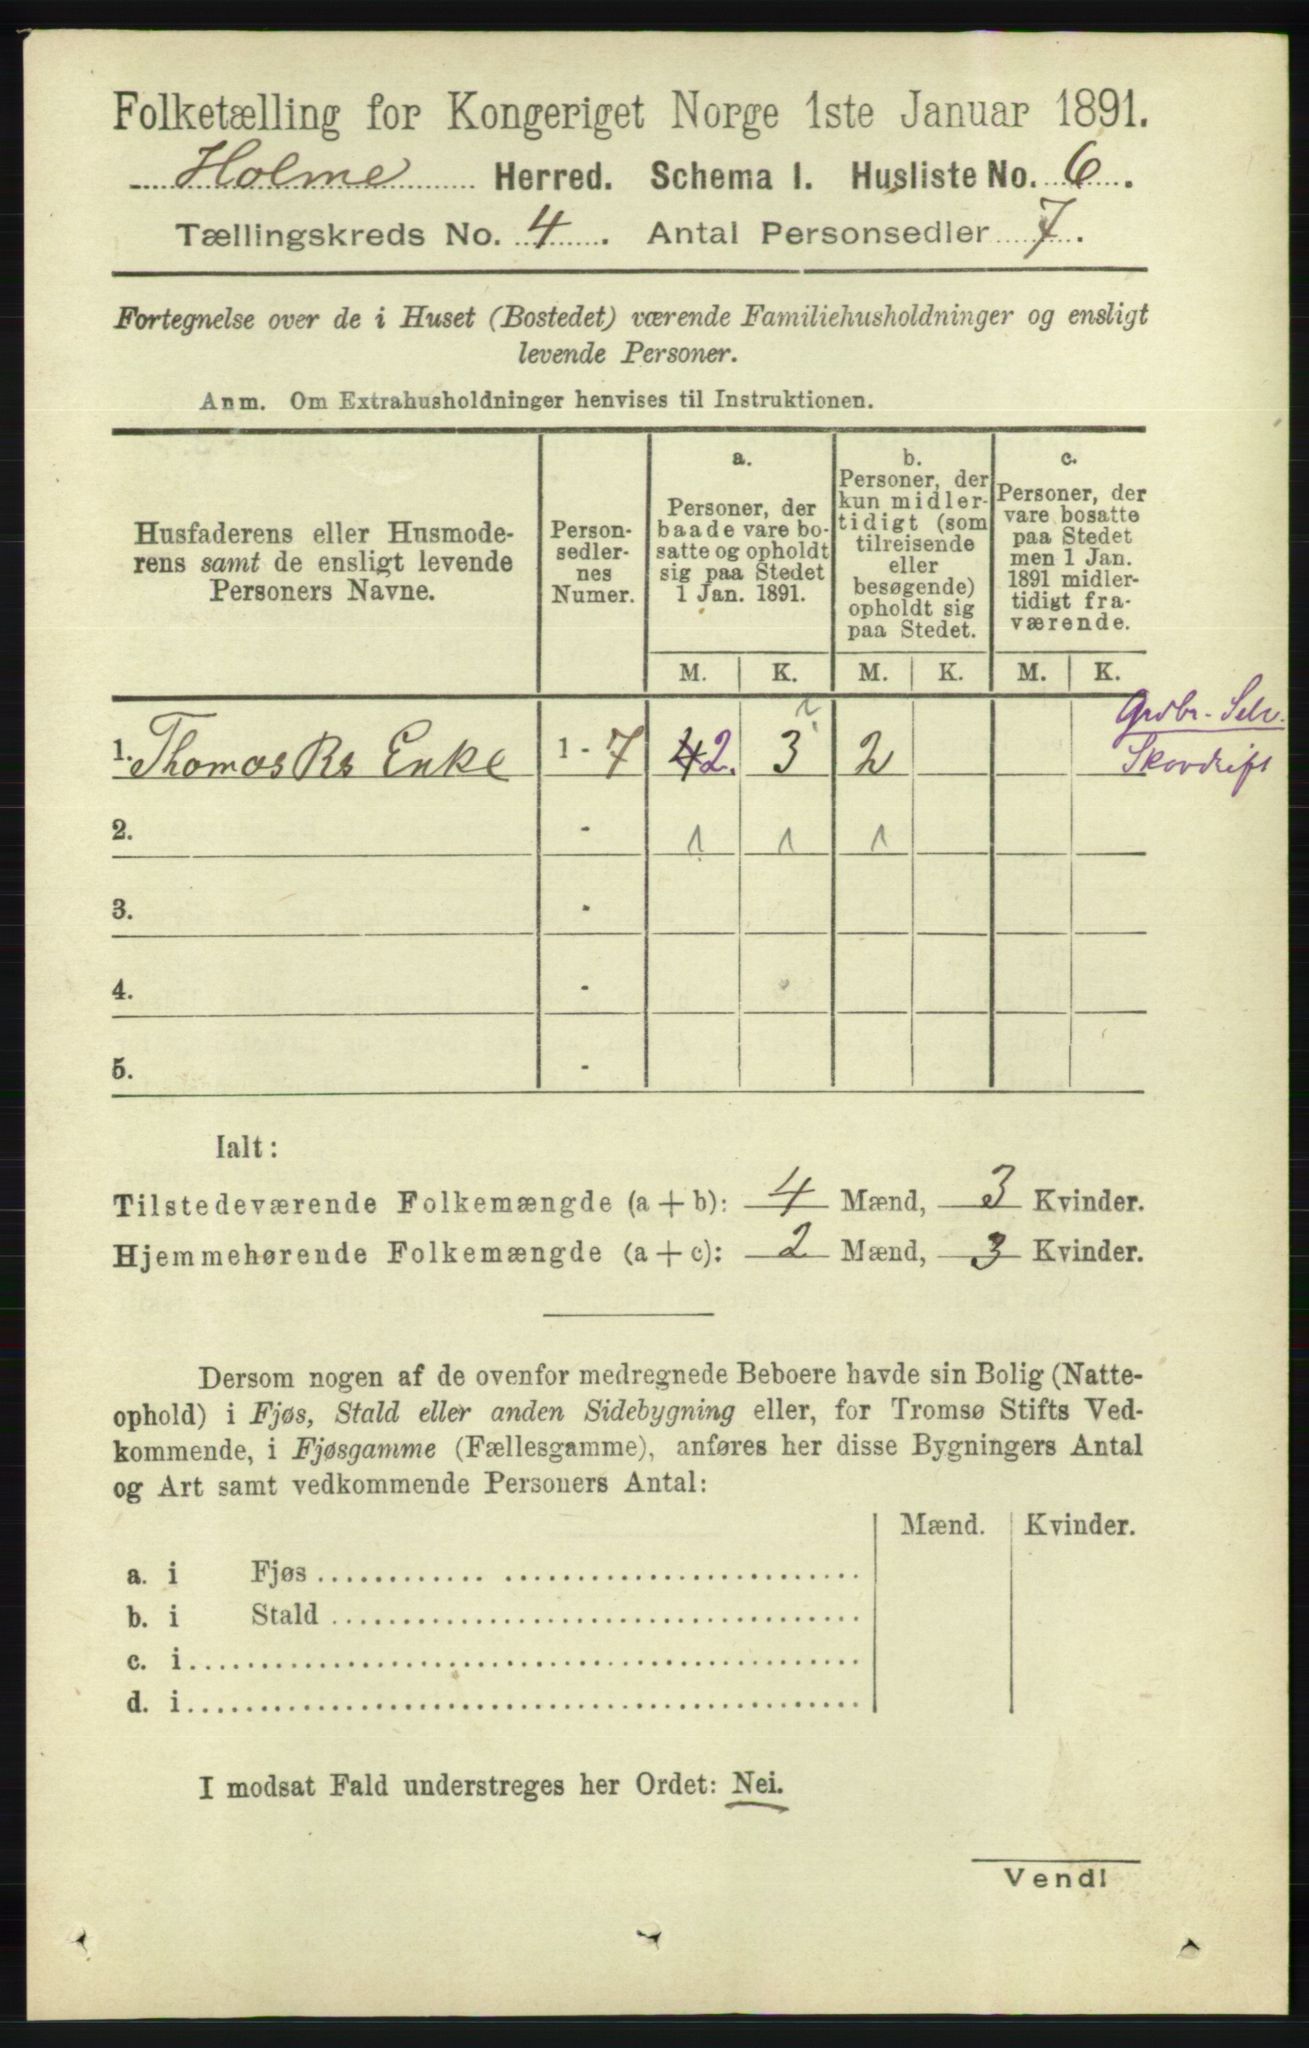 Folketælling for Kongeriget Norge 1ste Januar 1891.
Holme Herred. Schema I. Husliste No. 6.
Tællingskreds No. 4. Antal Personsedler 7.
Fortegnelse over de i Huset (Bostedet) værende Familiehusholdninger og ensligt
levende Personer.
Anm. Om Extrahusholdninger henvises til Instruktionen.
Husfaderens eller Husmode-
rens samt de ensligt levende
Personers Navne.
Person-
sedler-
nes
Numer.
a.
Personer, der
baade vare bo-
satte og opholdt
sig paa Stedet
1 Jan. 1891.
b.
Personer, der
kun midler-
tidigt (som
tilreisende
eller
besøgende)
opholdt sig
paa Stedet.
c.
Personer, der
vare bosatte
paa Stedet
men 1 Jan.
1891 midler-
tidigt fra-
værende.
M. K. M. K. M. K.
Grdbr. Selv.
1. Thomas Rs Enke 1 - 7 4 2. 3 2 Skovdrift
2. - 1 1 1
3. -
4. -
5. -
Ialt:
Tilstedeværende Folkemængde (a + b): 4 Mænd, 3 Kvinder.
Hjemmehørende Folkemængde (a + c): 2 Mænd, 3 Kvinder.
Dersom nogen af de ovenfor medregnede Beboere havde sin Bolig (Natte-
ophold) i Fjøs, Stald eller anden Sidebygning eller, for Tromsø Stifts Ved-
kommende, i Fjøsgamme (Fællesgamme), anføres her disse Bygningers Antal
og Art samt vedkommende Personers Antal:
Mænd. Kvinder.
a. i Fjøs
b. i Stald
c. i
d. i
I modsat Fald understreges her Ordet: Nei.
Vend!